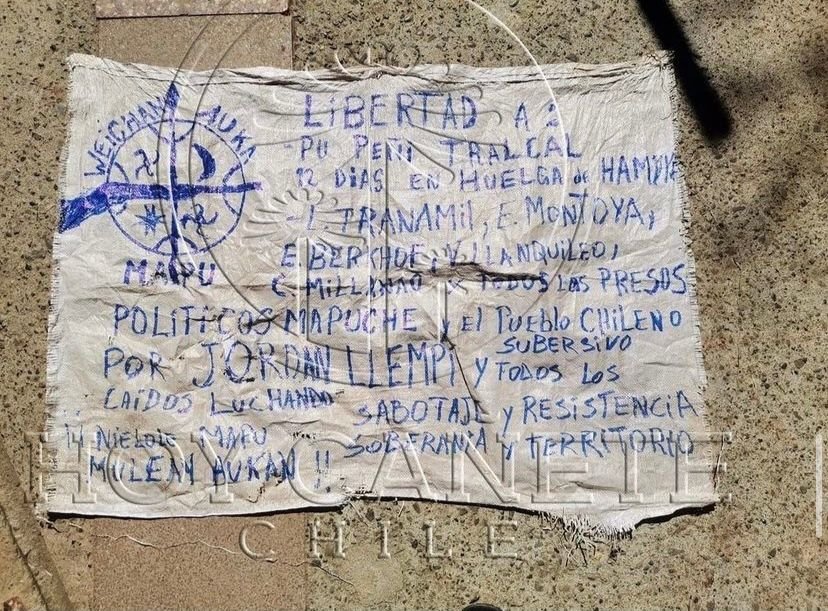 WEICHAN AUKA
MAPU
LIBERTAD A
- PU PEÑI TRALCAL
12 DIAS EN HUELGA de HAMBRE
- L. TRANAMIL, E. MONTOYA,
E. BERKHOE, LLANQUILEO,
C. MILLANAO TODOS LOS PRESOS
POLITICOS MAPUCHE y El PUEBLO CHILENO
SUBERSIVO
POR JORDAN LLEMPI y TODOS LOS
CAÍDOS LUCHANDO
SABOTAJE y RESISTENCIA
SOBERANIA y TERRITORIO
MAPU
MULEAY AUKAN !!
HOY CAÑETE
CHILE